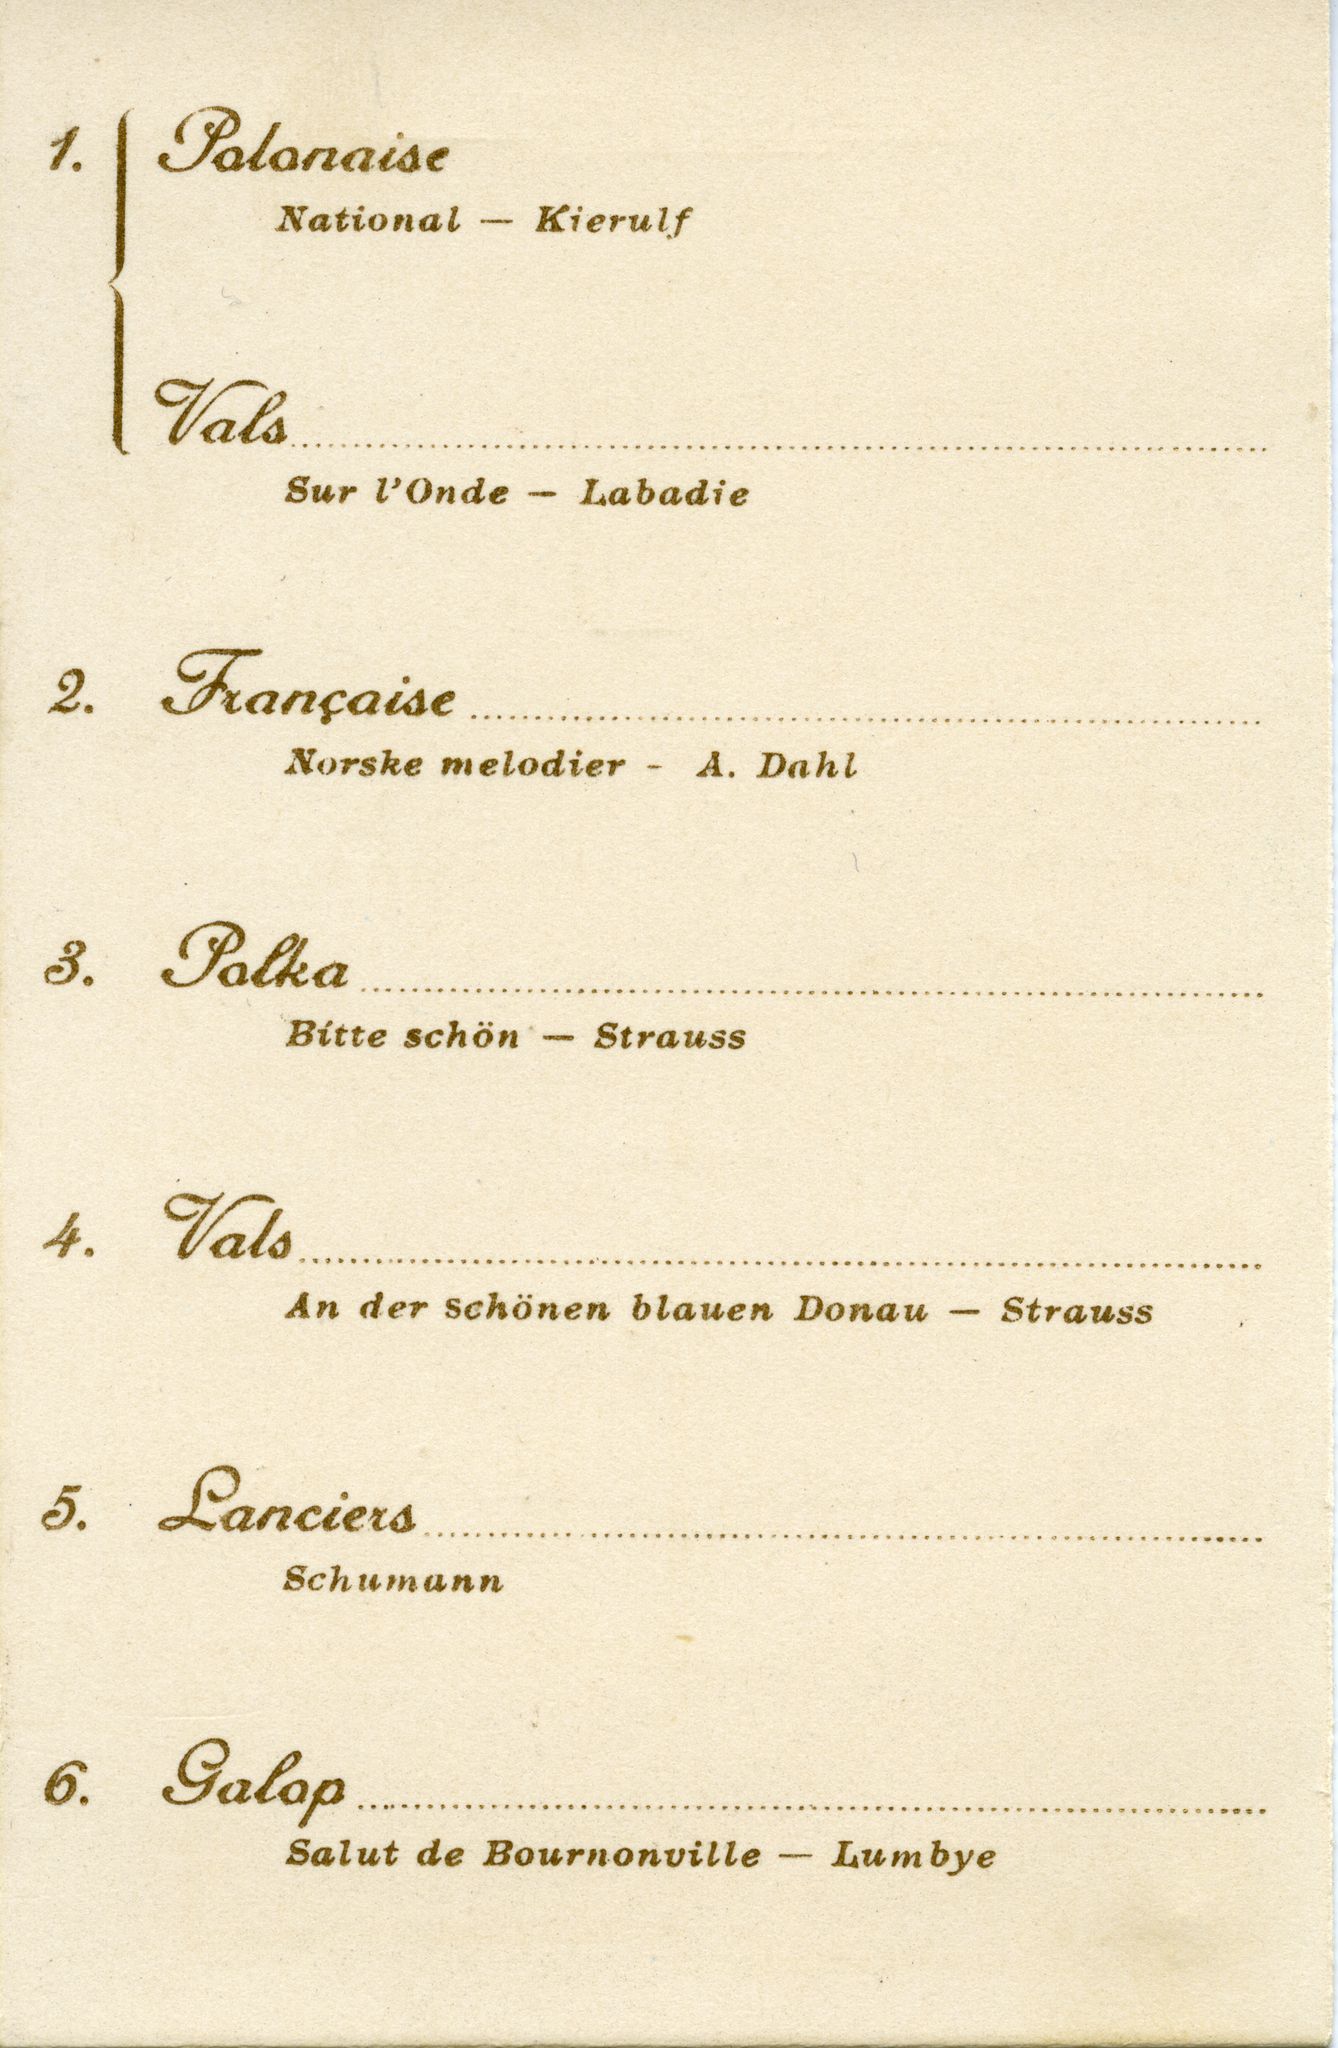 1. Polonaise
National — Kierulf
Vals
Sur l'Onde — Labadie
2. Française
Norske melodier - A. Dahl
3. Polka
Bitte schön — Strauss
4. Vals
An der schönen blauen Donau — Strauss
5. Lanciers
Schumann
6. Galop
Salut de Bournonville — Lumbye